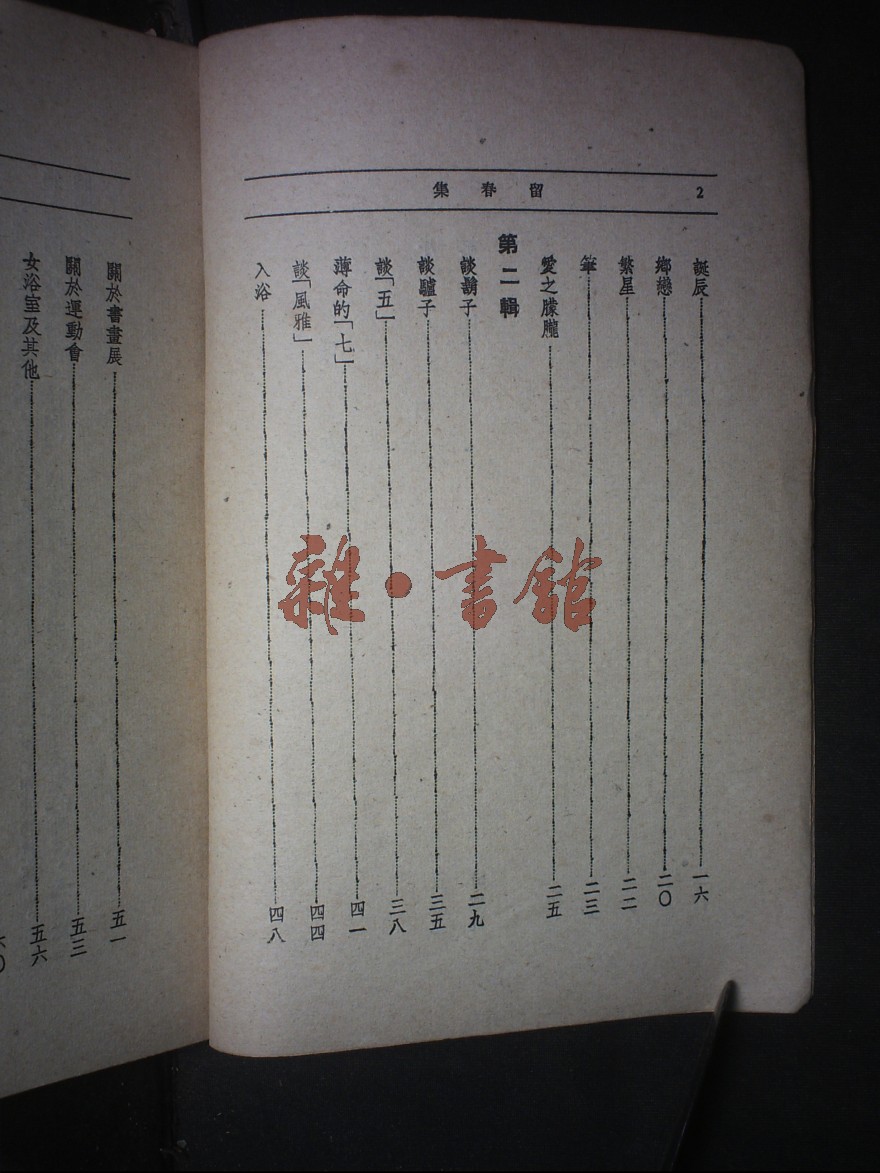 2 留春集
誕辰 一六
鄉戀 二〇
繁星 二二
筆 二三
愛之朦朧 二五
第二輯
談鬍子 二九
談驢子 三五
談「五」 三八
薄命的「七」 四一
談「風雅」 四四
入浴 四八
關於書畫展 五一
關於運動會 五三
女浴室及其他 五六
六〇
雜·書館